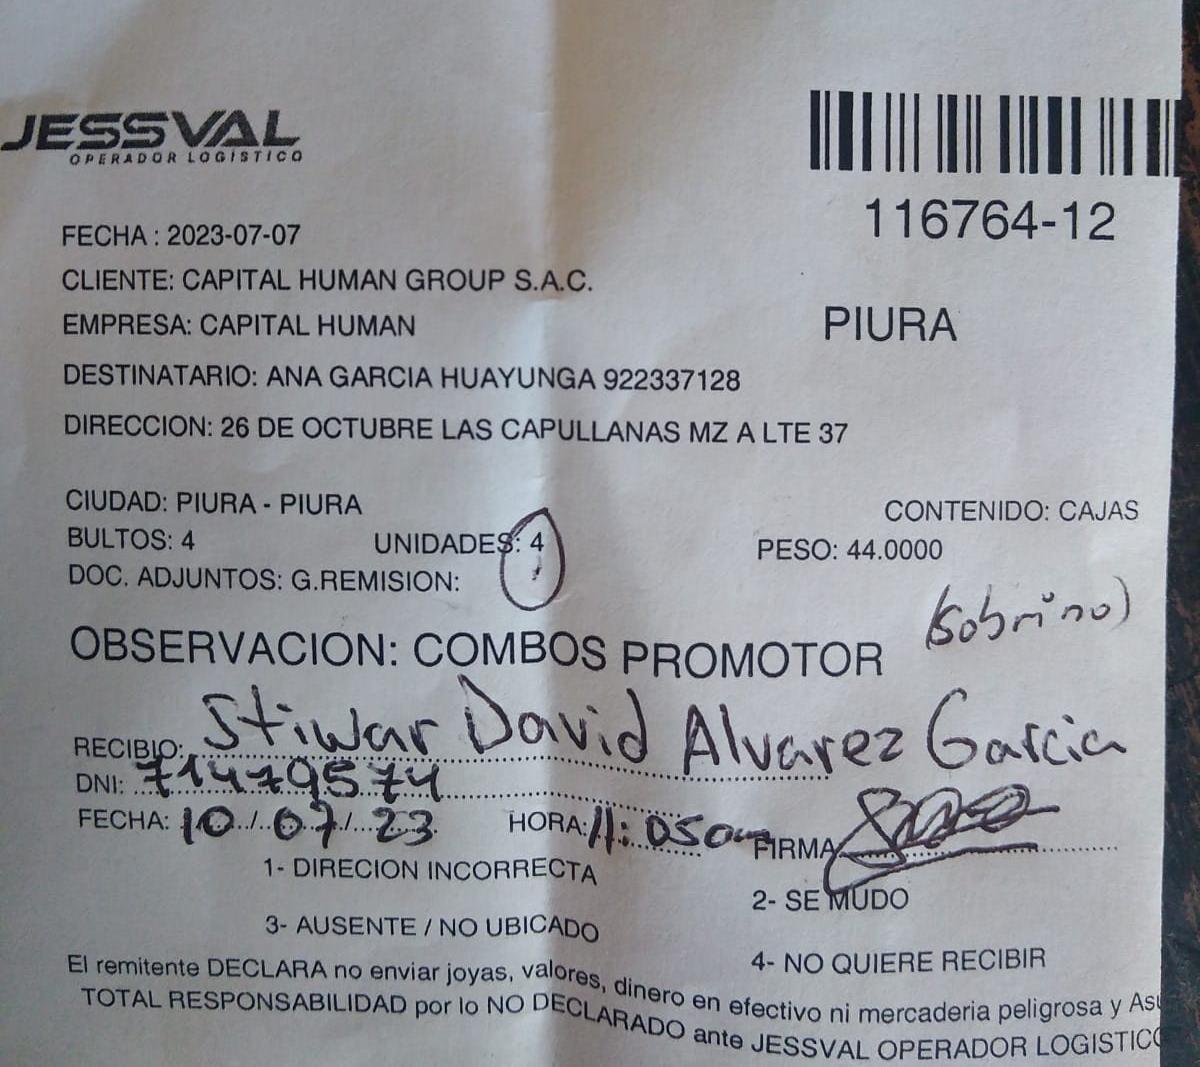 JESSVAL
OPERADOR LOGISTICO
116764-12
FECHA : 2023-07-07
CLIENTE: CAPITAL HUMAN GROUP S.A.C.
EMPRESA: CAPITAL HUMAN
PIURA
DESTINATARIO: ANA GARCIA HUAYUNGA 922337128
DIRECCION: 26 DE OCTUBRE LAS CAPULLANAS MZ A LTE 37
CIUDAD: PIURA - PIURA
CONTENIDO: CAJAS
BULTOS: 4 UNIDADES: 4 PESO: 44.0000
DOC. ADJUNTOS: G.REMISION:
(sobrino)
OBSERVACION: COMBOS PROMOTOR
RECIBIO: Stiwar David Alvarez Garcia
DNI: 71479574
FECHA: 10/07/23 HORA: 11:05am FIRMA
1- DIRECION INCORRECTA
2- SE MUDO
3- AUSENTE / NO UBICADO
4- NO QUIERE RECIBIR
El remitente DECLARA no enviar joyas, valores, dinero en efectivo ni mercaderia peligrosa y
TOTAL RESPONSABILIDAD por lo NO DECLARADO ante JESSVAL OPERADOR LOGISTICO